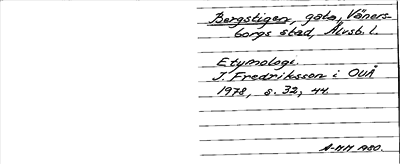 Bergstigen, gata, Väners-
borgs stad, Älvsb. l.
Etymologi.
J. Fredriksson i OUÅ
1978, s. 32, 44.
A-MM 1980.